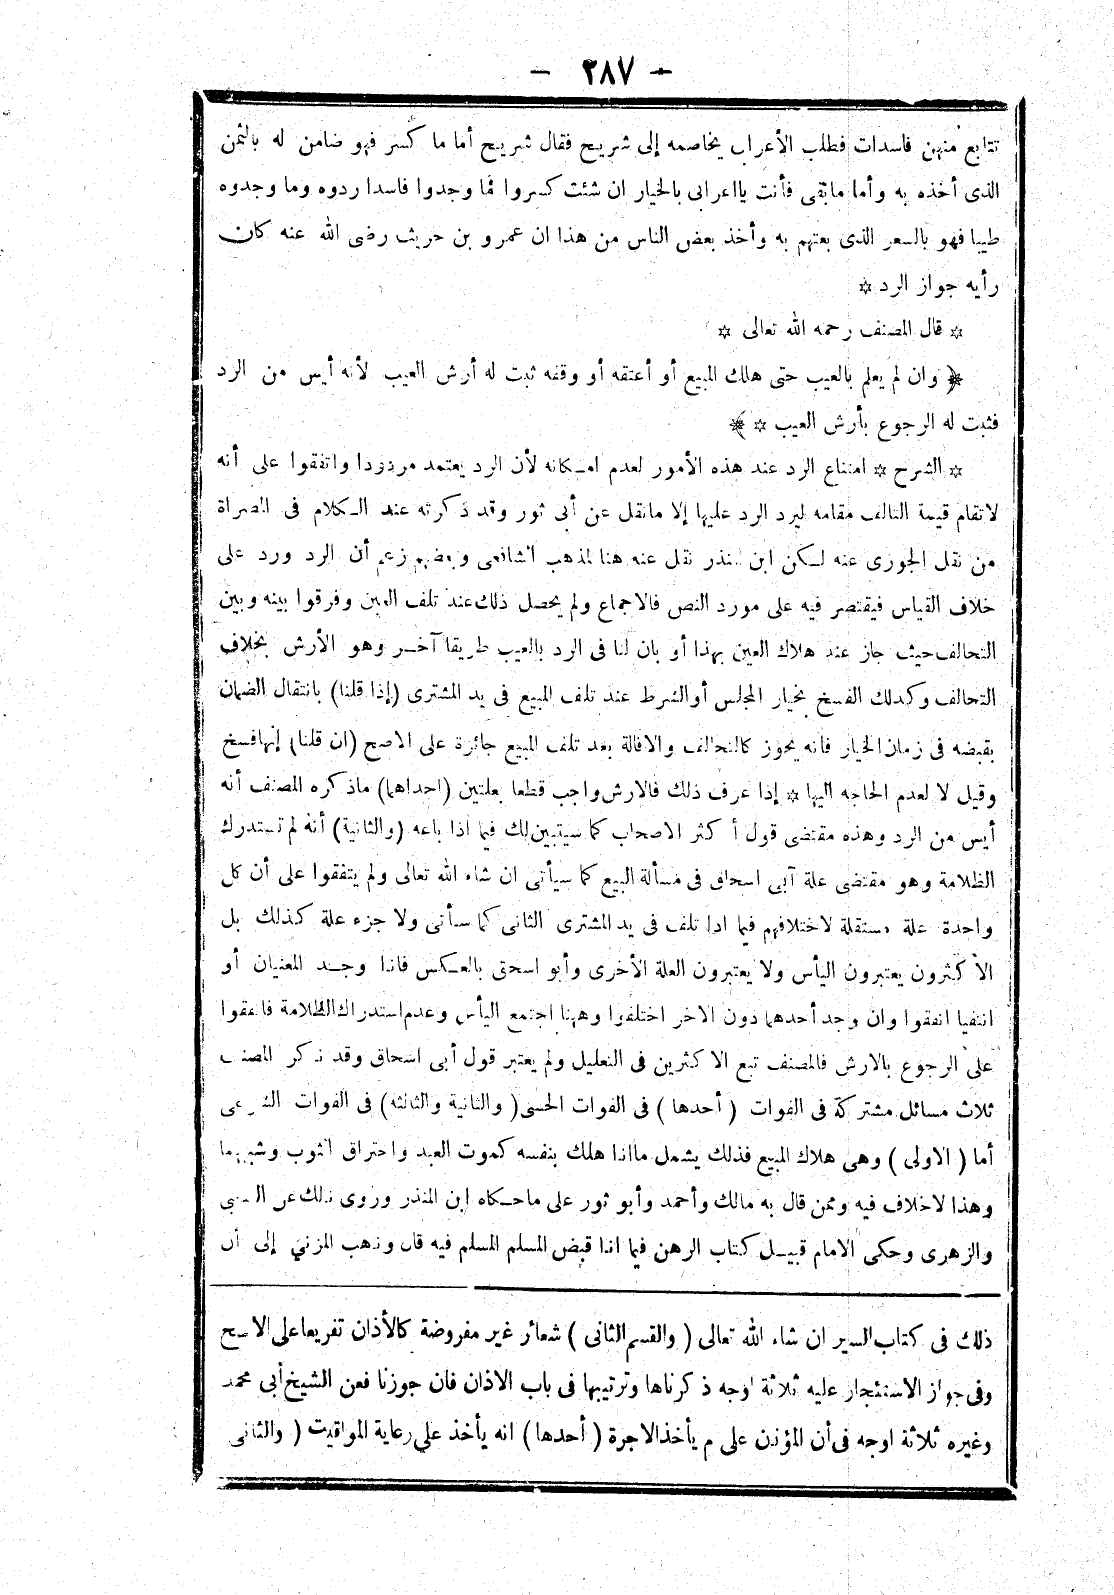 - ٢٨٧ -
تتابع منهن فاسدات فطلب الأعرابى يخاصمه إلى شريح فقال شريح أما ما كسر فهو ضامن له بالثمن
الذى أخذه به وأما مابقى فأنت يااعرابى بالخيار ان شئت كسروا فما وجدوا فاسدا ردوه وما وجدوه
طيبا فهو بالسعر الذى بعتهم به وأخذ بعض الناس من هذا ان عمرو بن حريث رضى الله عنه كان
رأيه جواز الرد ✡
✡ قال المصنف رحمه الله تعالى ✡
﴿ وان لم يعلم بالعيب حتى هلك المبيع أو أعتقه أو وقفه ثبت له أرش العيب لأنه أيس من الرد
فثبت له الرجوع بأرش العيب ✡ ﴾
✡ الشرح ✡ امتناع الرد عند هذه الأمور لعدم امكانه لأن الرد يعتمد مردودا واتفقوا على أنه
لاتقام قيمة التالف مقامه ليرد الرد عليها إلا مانقل عن أبى ثور وقد ذكرته عند الكلام فى المصراة
من نقل الجوزى عنه لكن ابن المنذر نقل عنه هنا لمذهب الشافعى وبعضهم زعم أن الرد ورد على
خلاف القياس فيقتصر فيه على مورد النص فالاجماع ولم يحصل ذلك عند تلف العين وفرقوا بينه وبين
التحالف حيث جاز عند هلاك العين بهذا أو بان لنا فى الرد بالعيب طريقا آخر وهو الأرش بخلاف
التحالف وكذلك الفسخ بخيار المجلس أوالشرط عند تلف المبيع فى يد المشترى (إذا قلنا) بانتقال الضمان
بقبضه فى زمان الخيار فانه يجوز كالتحالف والاقالة بعد تلف المبيع جائزة على الاصح (ان قلنا) إنهافسخ
وقيل لا لعدم الحاجه اليها ✡ إذا عرف ذلك فالارش واجب قطعا بعلتين (احداهما) ماذكره المصنف أنه
أيس من الرد وهذه مقتضى قول أكثر الاصحاب كما سيتبين لك فيما اذا باعه (والثانية) أنه لم تستدرك
الظلامة وهو مقتضى علة أبى اسحاق فى مسألة البيع كما سيأتى ان شاء الله تعالى ولم يتفقوا على أن كل
واحدة علة مستقلة لاختلافهم فيما اذا تلف فى يد المشترى الثانى كما سيأتى ولا جزء علة كذلك بل
الأكثرون يعتبرون اليأس ولا يعتبرون العلة الأخرى وأبو اسحق بالعكس فاذا وجد المعنيان أو
انتفيا اتفقوا وان وجد أحدهما دون الاخر اختلفوا وههنا اجتمع اليأس وعدم استدراك الظلامة فاتفقوا
على الرجوع بالارش فالمصنف تبع الاكثرين فى التعليل ولم يعتبر قول أبى اسحاق وقد ذكر المصنف
ثلاث مسائل مشتركة فى الفوات ( أحدها ) فى الفوات الحسى( والثانية والثالثه) فى الفوات الشرعى
أما ( الاولى ) وهى هلاك المبيع فذلك يشمل مااذا هلك بنفسه كموت العبد واحتراق الثوب وشبههما
وهذا لاخلاف فيه وممن قال به مالك وأحمد وأبو ثور على ماحكاه ابن المنذر وروى ذلك عن الشعبى
والزهرى وحكى الامام قبيل كتاب الرهن فيما اذا قبض المسلم المسلم فيه قال وذهب المزنى إلى أن
ذلك فى كتاب السير ان شاء الله تعالى ( والقسم الثانى ) شعائر غير مفروضة كالأذان تفريعا على الاصح
وفى جواز الاستئجار عليه ثلاثة اوجه ذكرناها وترتيبها فى باب الاذان فان جوزنا فعن الشيخ أبى محمد
وغيره ثلاثة اوجه فى أن المؤذن على م يأخذ الاجرة ( أحدها ) انه يأخذ على رعاية المواقيت ( والثانى